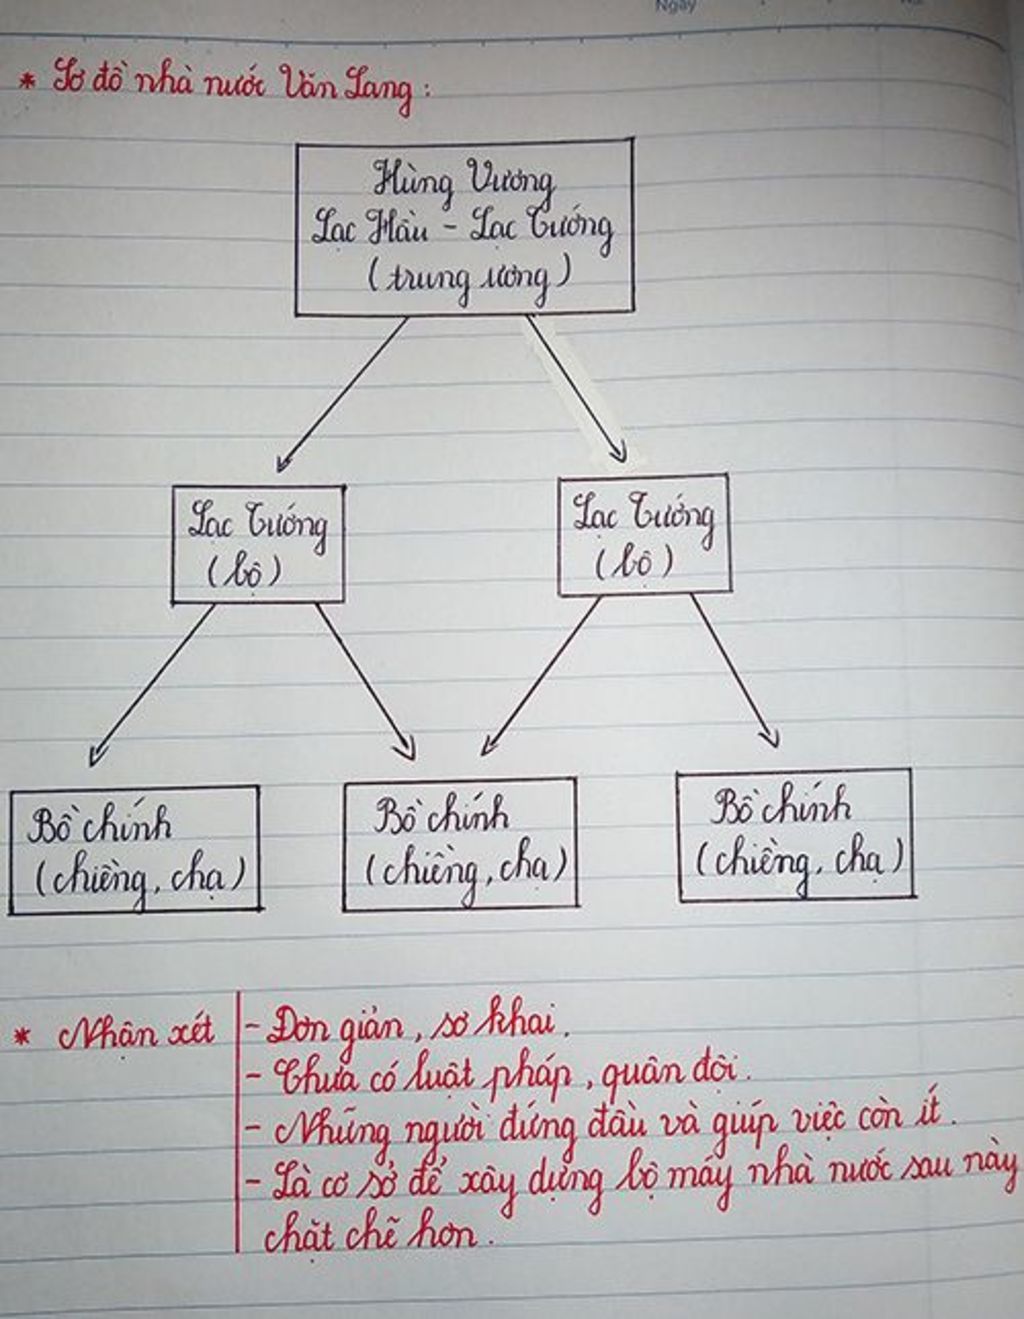 Ngày
* Sơ đồ nhà nước Văn Lang:
Hùng Vương
Lạc Hầu - Lạc Tướng
(trung ương)
Lạc Tướng
(bộ)
Lạc Tướng
(bộ)
Bồ chính
(chiềng, chạ)
Bồ chính
(chiềng, chạ)
Bồ chính
(chiềng, chạ)
* Nhận xét
- Đơn giản, sơ khai.
- Chưa có luật pháp, quân đội.
- Những người đứng đầu và giúp việc còn ít.
- Là cơ sở để xây dựng bộ máy nhà nước sau này
chặt chẽ hơn.